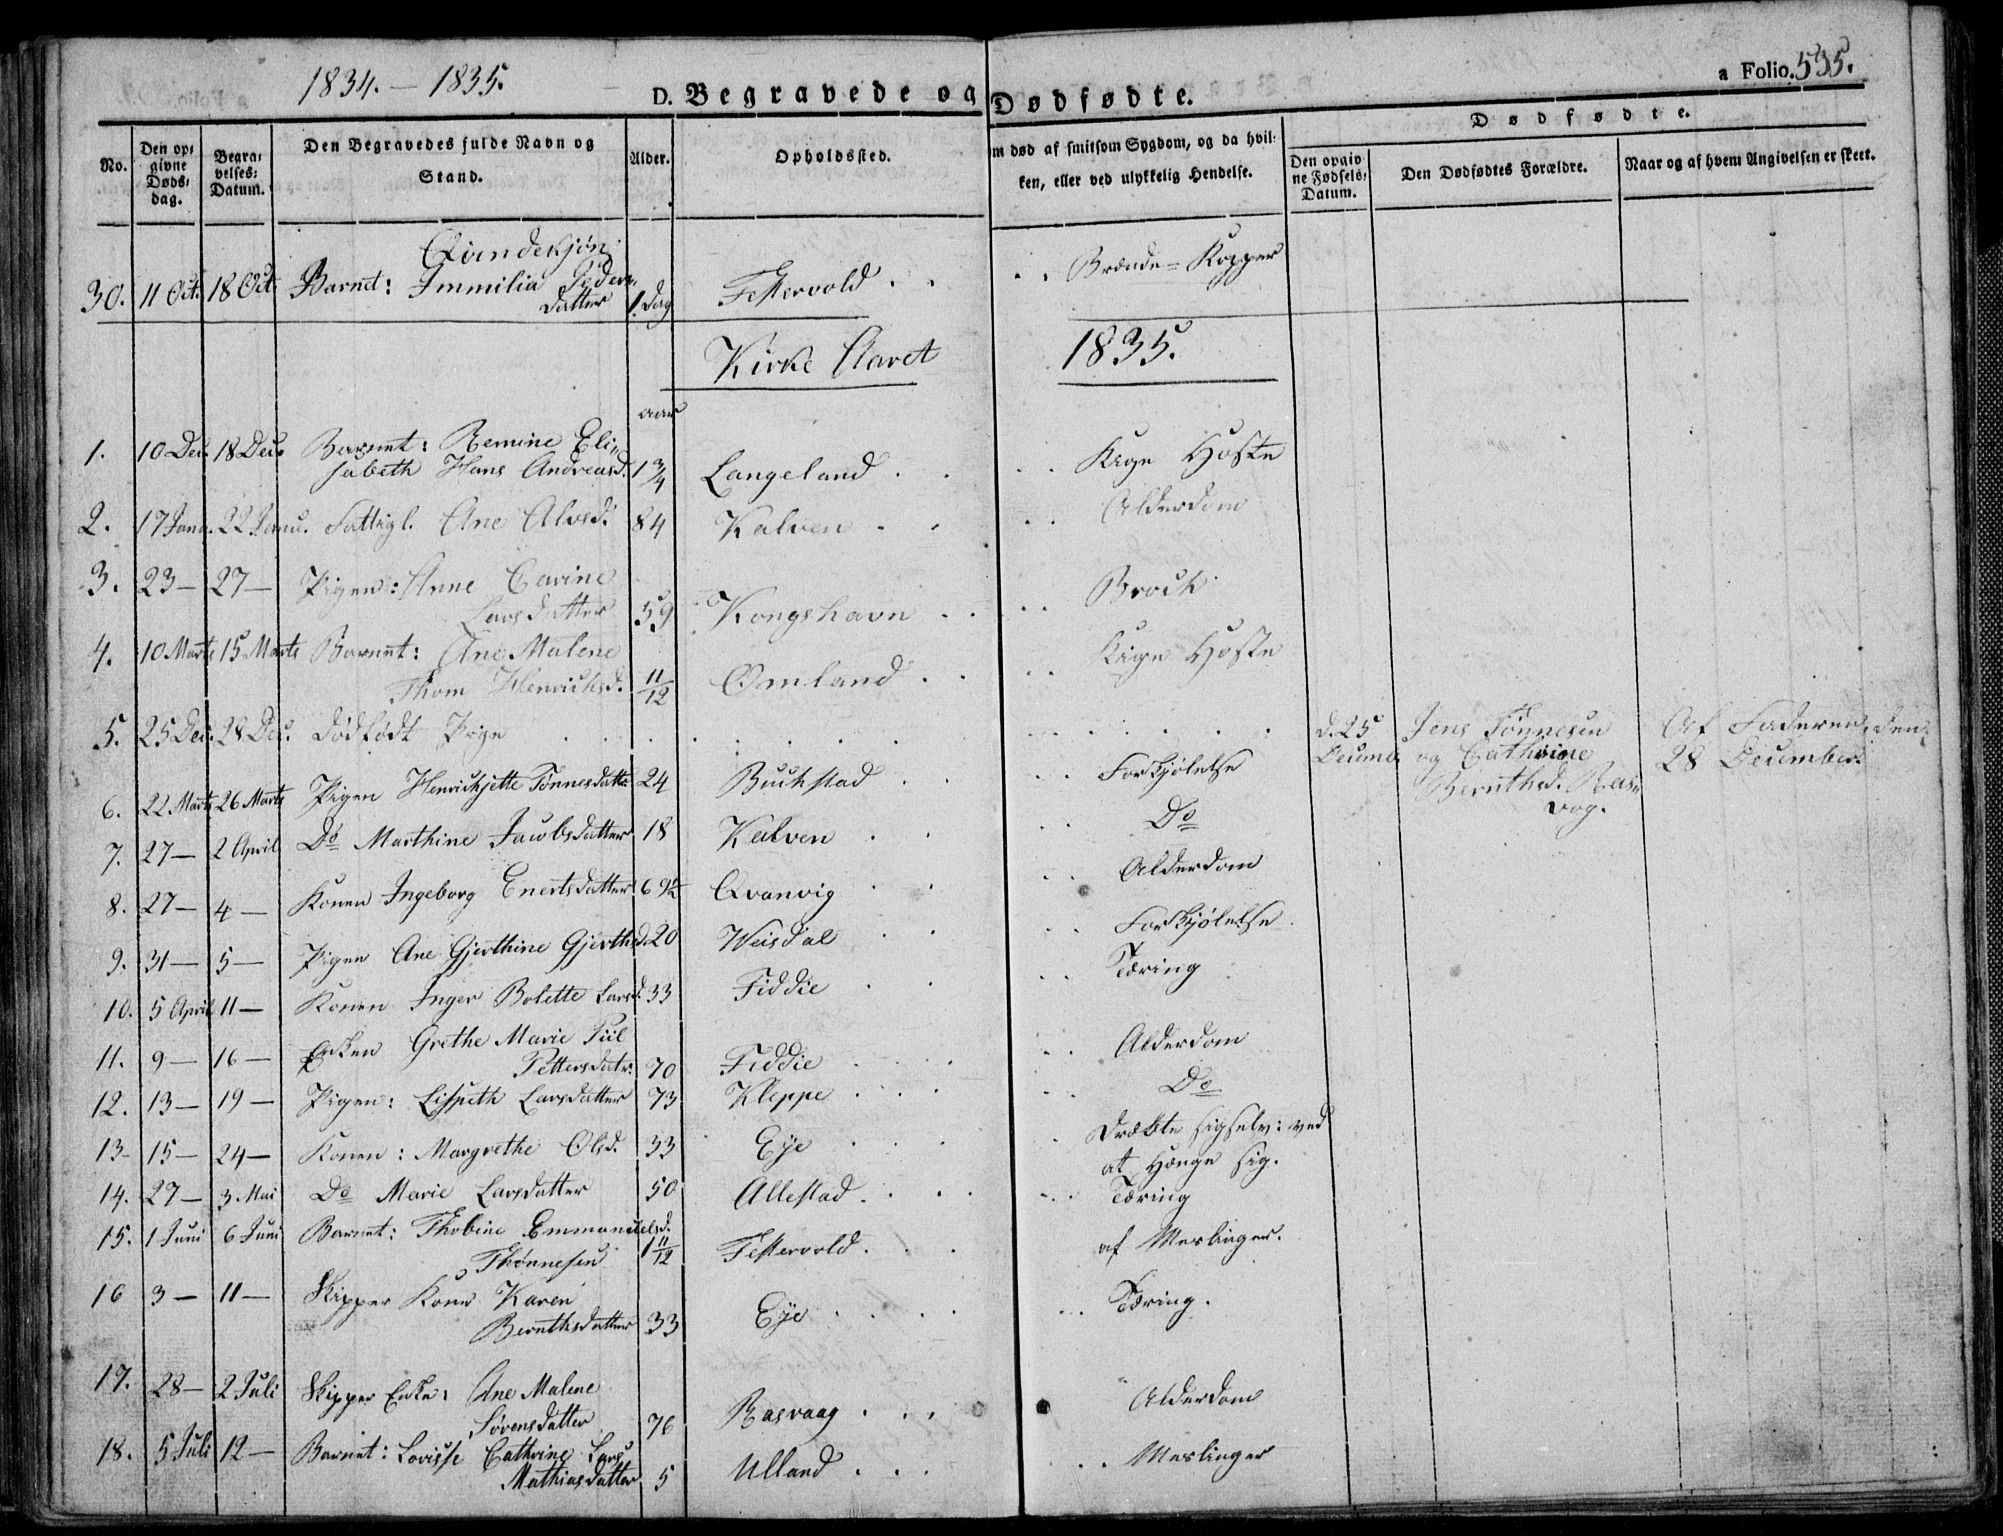 1834. — 1835.
D. Begravede og Dødfødte.
a Folio. 595.
No.
Den opgivne Døds-dag.
Begravelses-Datum.
Den Begravedes fulde Navn og Stand.
Alder.
Opholdssted.
m død af smitsom Sygdom, og da hvilken, eller ved ulykkelig Hendelse.
Dødfødte.
Den opgivne Fødsels-Datum.
Den Dødfødtes Forældre.
Naar og af hvem Angivelsen er skeet.
30. 11 Oct. 18 Oct. Barnet: Immilia Peders datter 1 Dag Festervold . . . . Brænde-Kopper
Kirke Aaret 1835.
aar
1. 10 Dec. 18 Dec. Barnet: Remine Elisabeth Hans Andreasd. 1 3/4 Langeland . . . . Kige Hoste
2. 17 Janu. 22 Janu. Fattigl. Ane Alvsd. 84 Kalven . . . . Alderdom
3. 23 — 27 — Pigen: Anne Carine Larsdatter 59 Kongshavn . . . Brock
4. 10 Marts 15 Marts Barnet: Ane Malene Thom Henrichsd. 11/12 Omland . . . . Kige Hoste
5. 25 Dec. 28 Dec. Dødfødt Pige . . . . . . d. 25 Decemb. Jens Tønnesen og Cathrine Bernthsd. Rasvog. Af Faderen, den 28 December.
6. 22 Marts 26 Marts Pigen Henrichjette Tønnesdatter 24 Buchstad . . . . Forkjølelse
7. 27 — 2 April Do Marthine Jacobsdatter 18 Kalven . . . . Do
8. 27 — 4 — Konen Ingeborg Enertsdatter 69½ Qvanvig . . . . Alderdom
9. 31 — 5 — Pigen Ane Gjerthine Gjerthsd. 20 Weisdal . . . . Forkjølelse.
10. 5 April 11 — Konen Inger Bolette Larsd. 33 Fiddie . . . . Tæring
11. 9 — 16 — Enken Grethe Marie Piil Pettersdatr. 70 Fiddie . . . . Alderdom
12. 13 — 19 — Pigen: Lispeth Larsdatter 73 Kleppe . . . . Do
13- 15 — 24 — Konen: Margrethe Olsd. 33 Eye . . . . Dræbte sigselv: ved at Hænge sig.
14. 27 — 3. Mai Do Marie Larsdatter 50 Allestad . . . . Tæring
15. 1 Juni 6 Juni Barnet: Thobine Emmanuelsd. Thønnesen 1 11/12 Festervold . . . af Meslinger.
16 3 — 11 — Skipper Kone Karen Bernthsdatter 33 Eye . . . . Tæring.
17. 28 — 2 Juli Skipper Enke: Ane Malene Sørensdatter 76 Rasvaag . . . Alderdom
18. 5 Juli 12 — Barnet: Lovisse Cathrine Lars Mathiasdatter 5 Ulland . . . . Meslinger